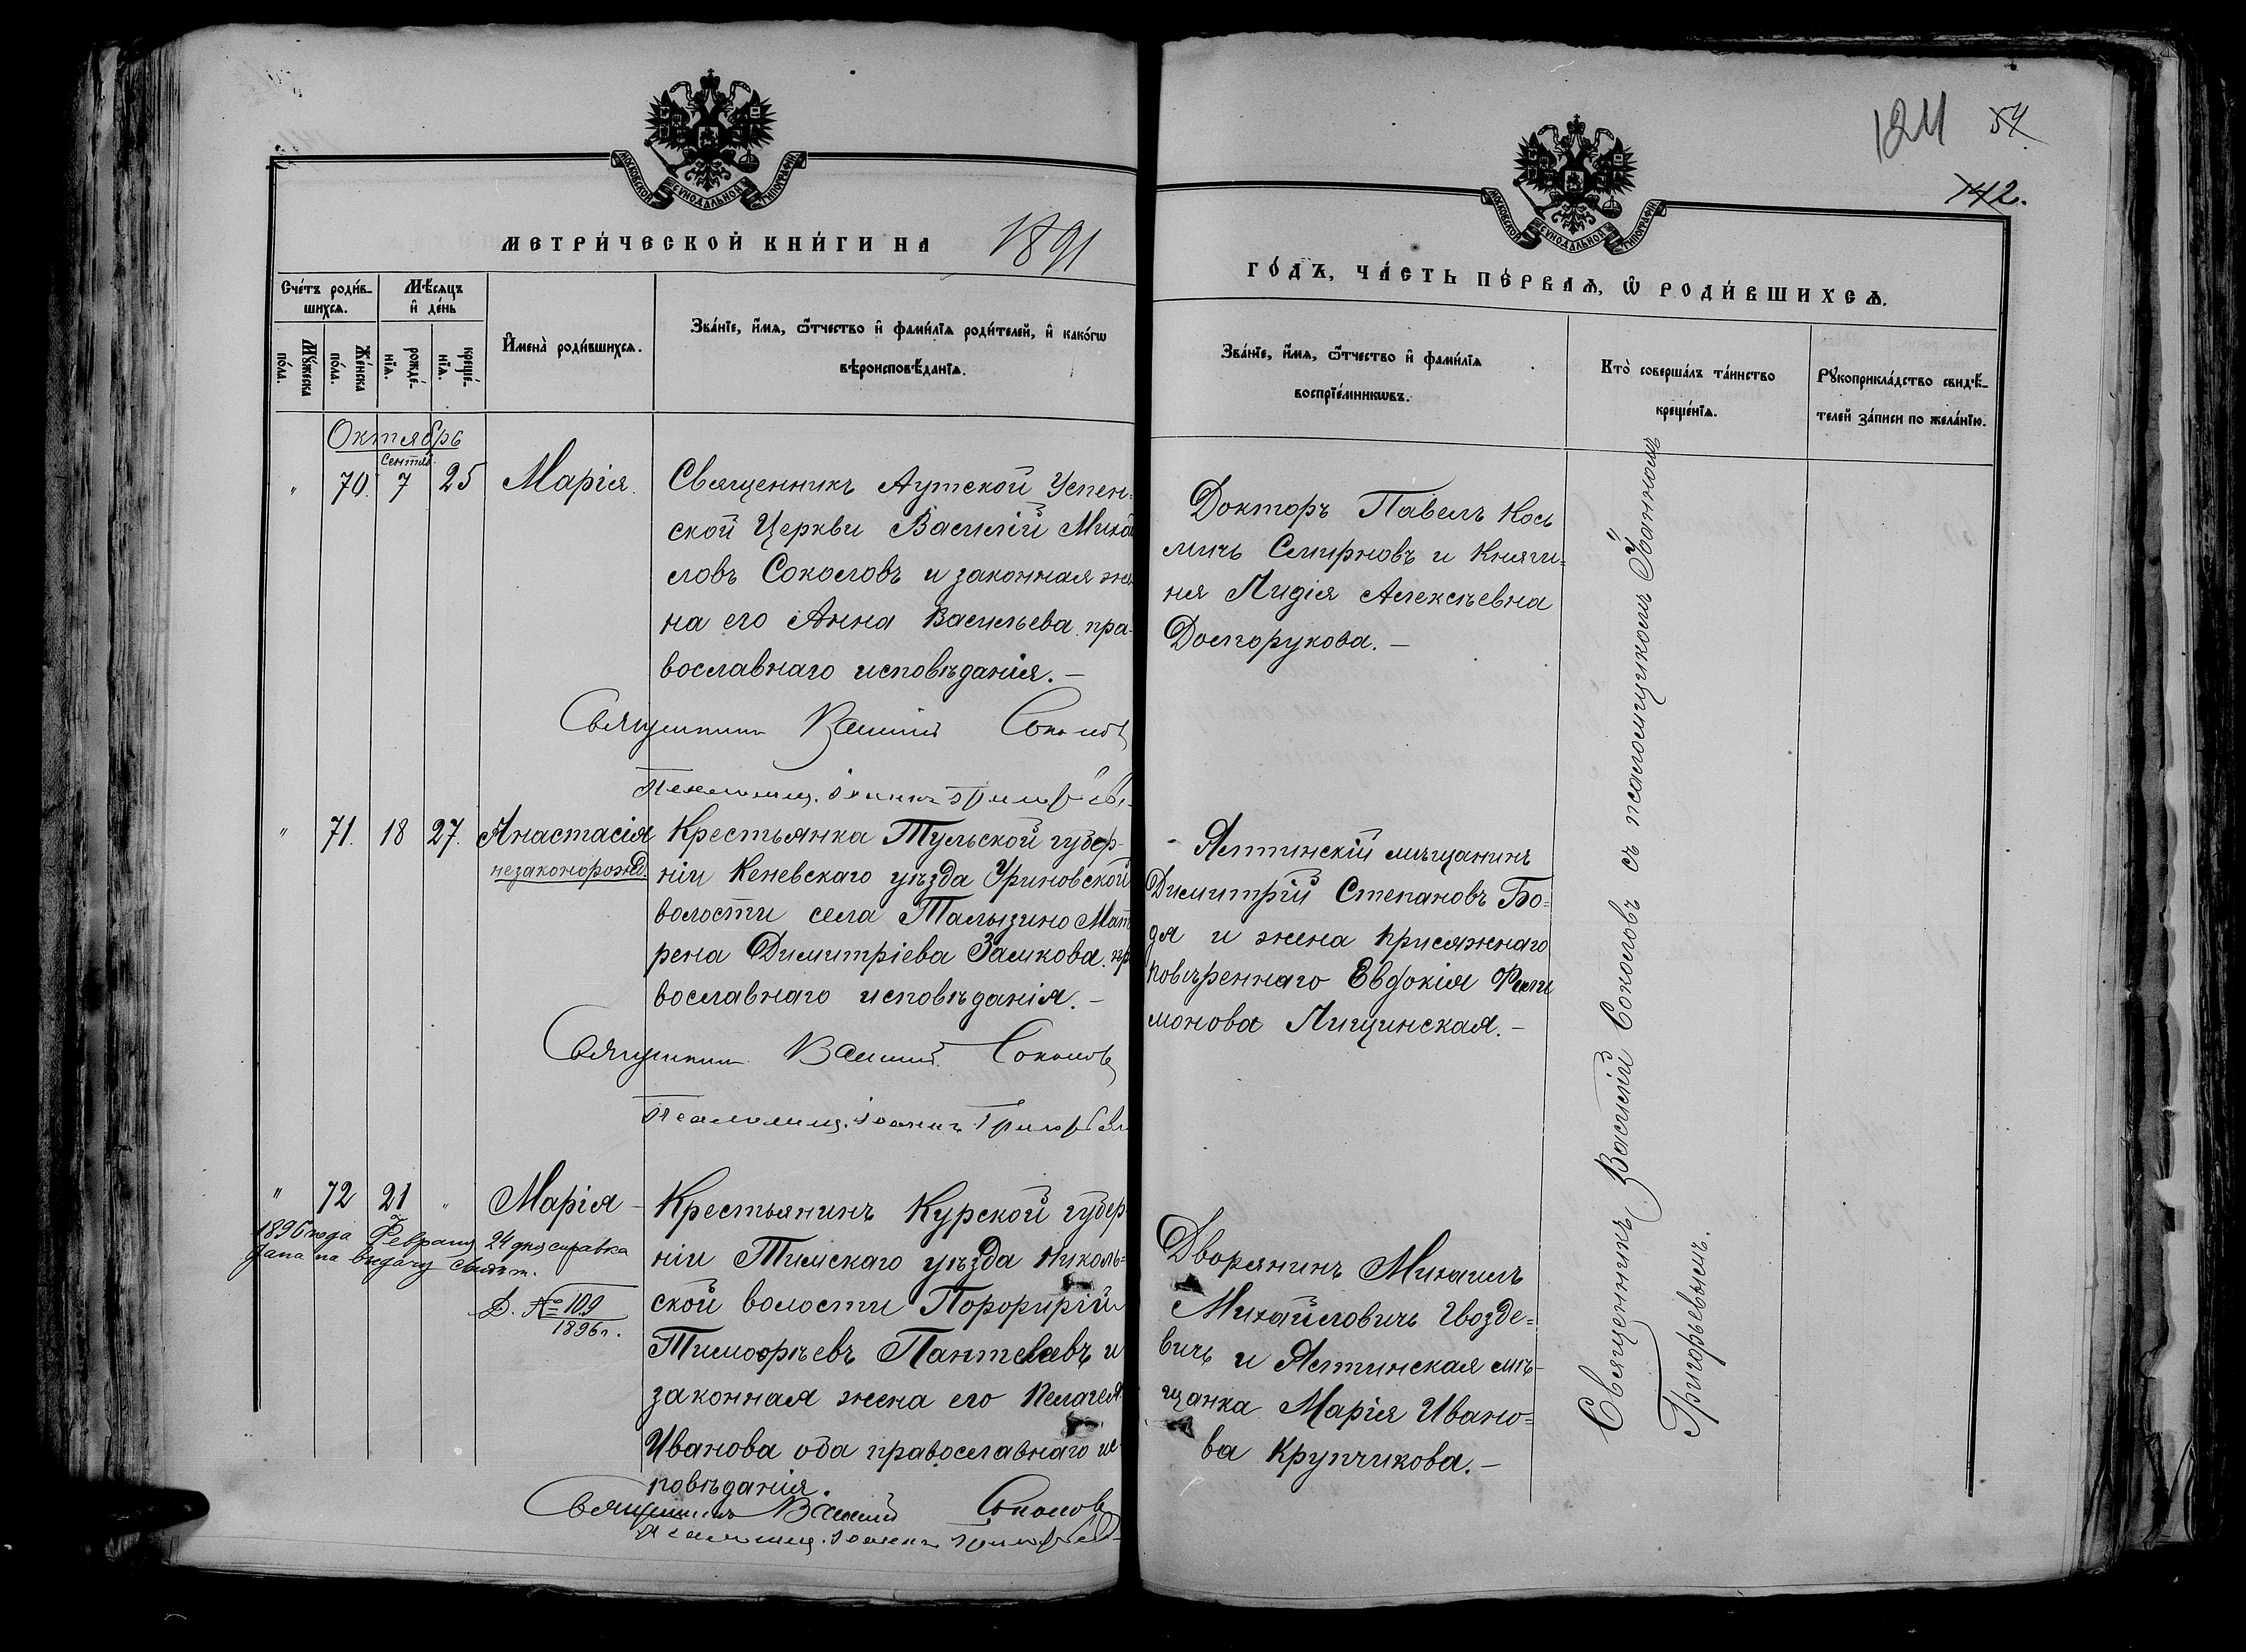 МОСКОВСКОЙ СУНОДАЛЬНОЙ ТИПОГРАФІИ
МЕТРИ́ЧЕСКОЙ КНИ́ГИ НА 1891
Сче́тъ роди́в-
шихсѧ.
Мѣ́сѧцъ
и҆ де́нь
Мꙋ́жеска
по́ла.
Же́нска
по́ла.
рожде́-
нїѧ.
креще́-
нїѧ.
И҆мена̀ роди́вшихсѧ.
Зва́нїе, и҆́мѧ, ѻ҆́тчество и҆ фами́лїѧ роди́телей, и҆ како́гѡ
вѣроисповѣ́данїѧ.
Октябрь
Сентяб.
" 70. 7 25 Марія.
Священникъ Аутской Успен=
ской Церкви Василій Михаи
ловъ Соколовъ и законная же
на его Анна Васильева пра-
вославнаго исповѣданія.—
Священникъ Василій Соколовъ
Псаломщ. Іоаннъ Григорьевъ
" 71. 18 27. Анастасія
незаконорожд.
Крестьянка Тульской губер-
ніи Кеневскаго уѣзда Уриновской
волости села Талызино Мат
рена Димитріева Замкова. пр
вославнаго исповѣданія.—
Священникъ Василій Соколовъ
Псаломщ. Іоаннъ Григорьевъ
" 72 21 " Марія —
1896 года Февраля 24 дня справка
дана на выдачу свидѣт.
Д. № 109
1896 г.
Крестьянинъ Курской губер
ніи Тимскаго уѣзда Николь=
ской волости Порфирій
Тимофѣевъ Пантелеевъ и
законная жена его Пелагея
Иванова оба православнаго ис
повѣданія.
Священникъ Василій Соколовъ
Псаломщ. Іоаннъ Григорьевъ
54
142.
МОСКОВСКОЙ СУНОДАЛЬНОЙ ТИПОГРАФІИ
ГО́ДЪ, ЧА́СТЬ ПЕ́РВАѦ, Ѡ҆ РОДИ́ВШИХСѦ.
Зва́нїе, и҆́мѧ, ѻ҆́тчество и҆ фами́лїѧ
воспрїе́мникѡвъ.
Кто̀ соверша́лъ та́инство
креще́нїѧ.
Рꙋкоприкла́дство свидѣ́-
телей за́писи по жела́нїю.
Докторъ Павелъ Кось
мичъ Смирновъ и Княги=
ня Лидія Алексѣевна
Долгорукова.—
Ялтинскій мѣщанинъ
Димитрій Степановъ Бо=
дя и жена присяжнаго
повѣреннаго Евдокія Фили
монова Лищинская.—
Дворянинъ Михаилъ
Михайловичъ Гвозде=
вичъ и Ялтинская мѣ-
щанка Марія Ивано=
ва Крупчикова.—
Священникъ Василій Соколовъ съ псаломщикомъ Іоанномъ
Григорьевымъ.